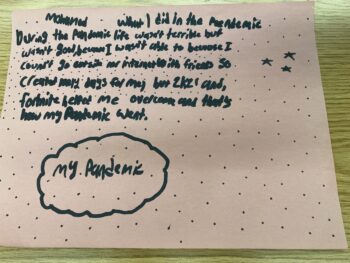 Mohamed what I did in the Pandemic
During the Pandemic life wasn't terrible but
wasn't good because I wasn't able to because I
couldn't go outside nor interact with friends so
created many days for me, but 2k21 and,
fortnite helped me overcome and that's
how my Pandemic went.
my Pandemic